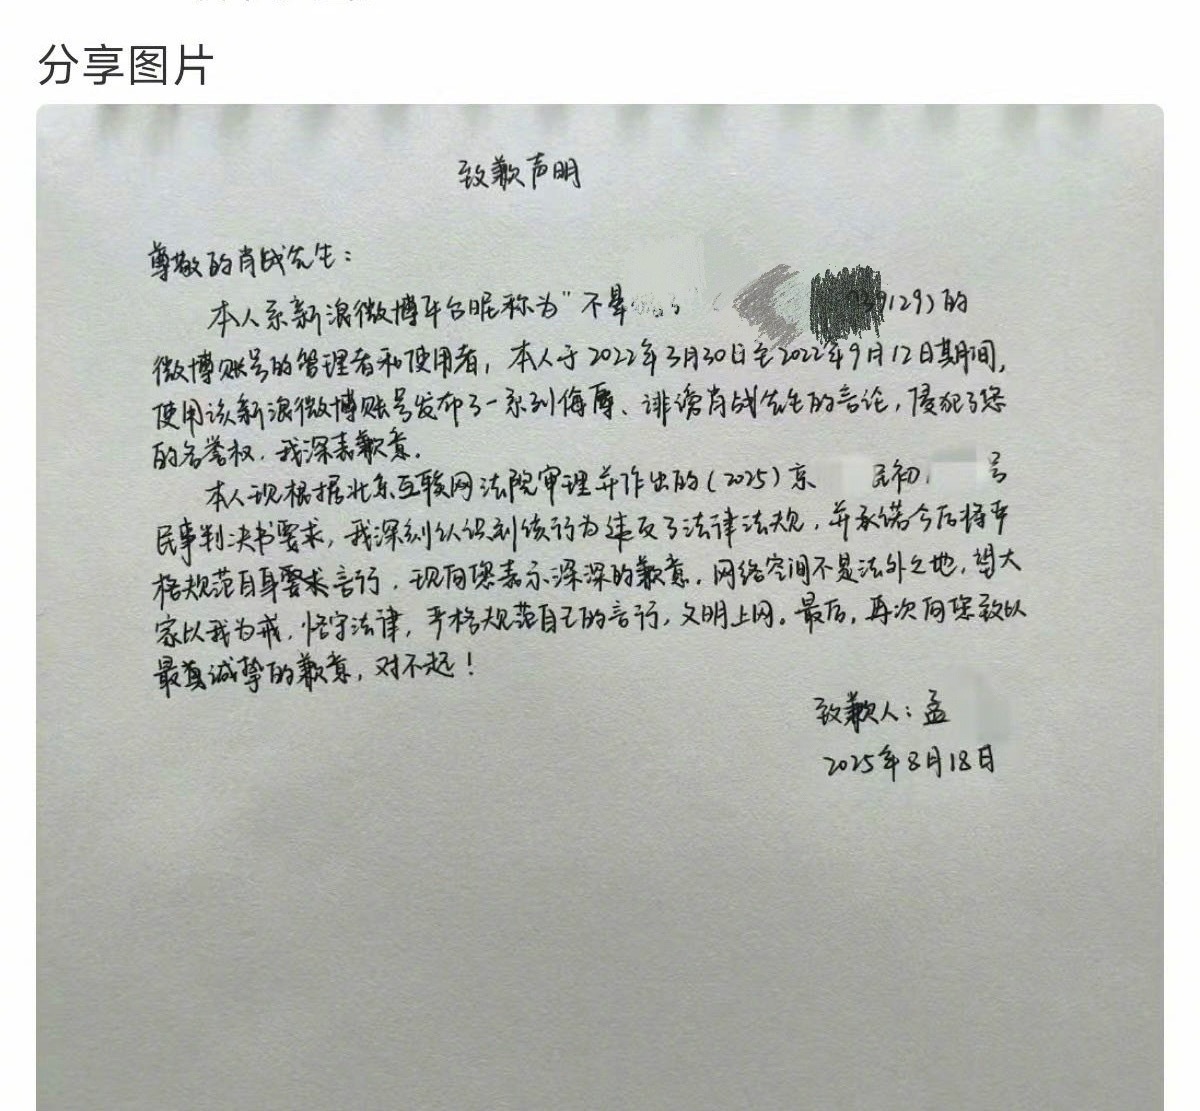 分享图片
致歉声明
尊敬的肖战先生：
本人系新浪微博平台昵称为“不晕 29129)的
微博账号的管理者和使用者，本人于2022年3月30日至2022年9月12日期间，
使用该新浪微博账号发布了一系列侮辱、诽谤肖战先生的言论，侵犯了您
的名誉权，我深表歉意。
本人现根据北京互联网法院审理并作出的（2025）京 民初 号
民事判决书要求，我深刻认识到该行为违反了法律法规，并承诺今后将严
格规范自身要求言行，现向您表示深深的歉意。网络空间不是法外之地，望大
家以我为戒，恪守法律，严格规范自己的言行，文明上网。最后，再次向您致以
最真诚挚的歉意，对不起！
致歉人：孟
2025年8月18日